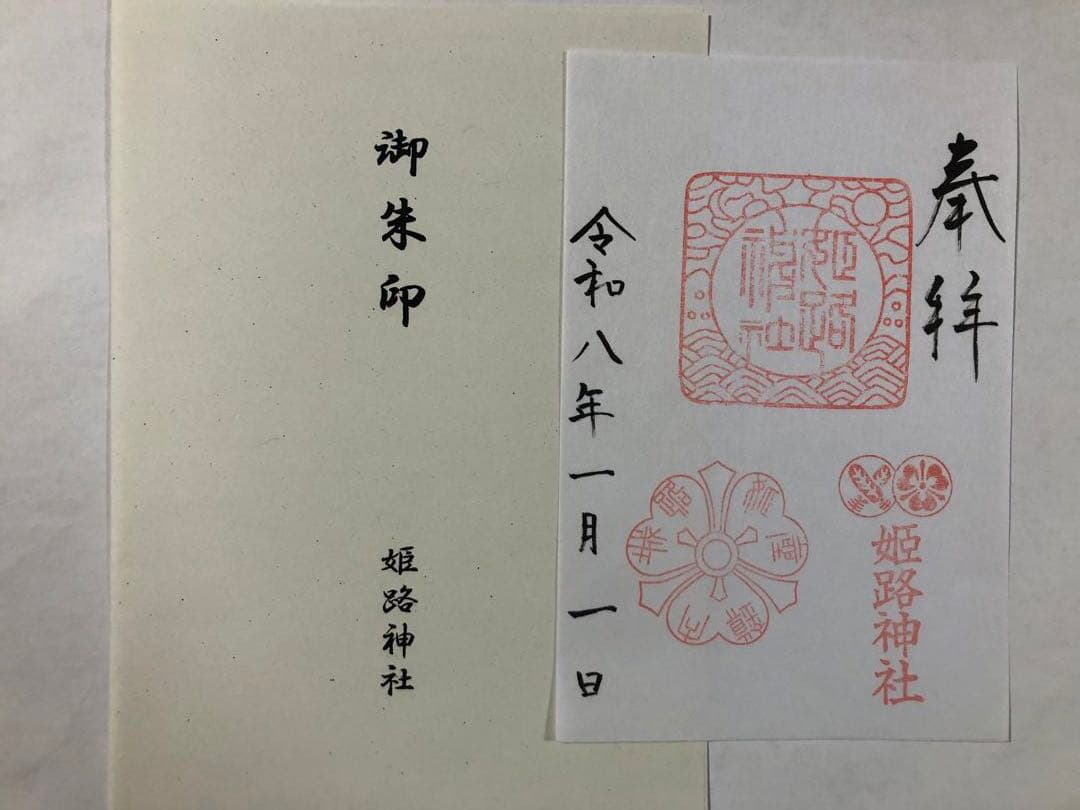 御朱印
姫路神社
奉拝
姫路
神社
姫路神社
令和八年一月一日